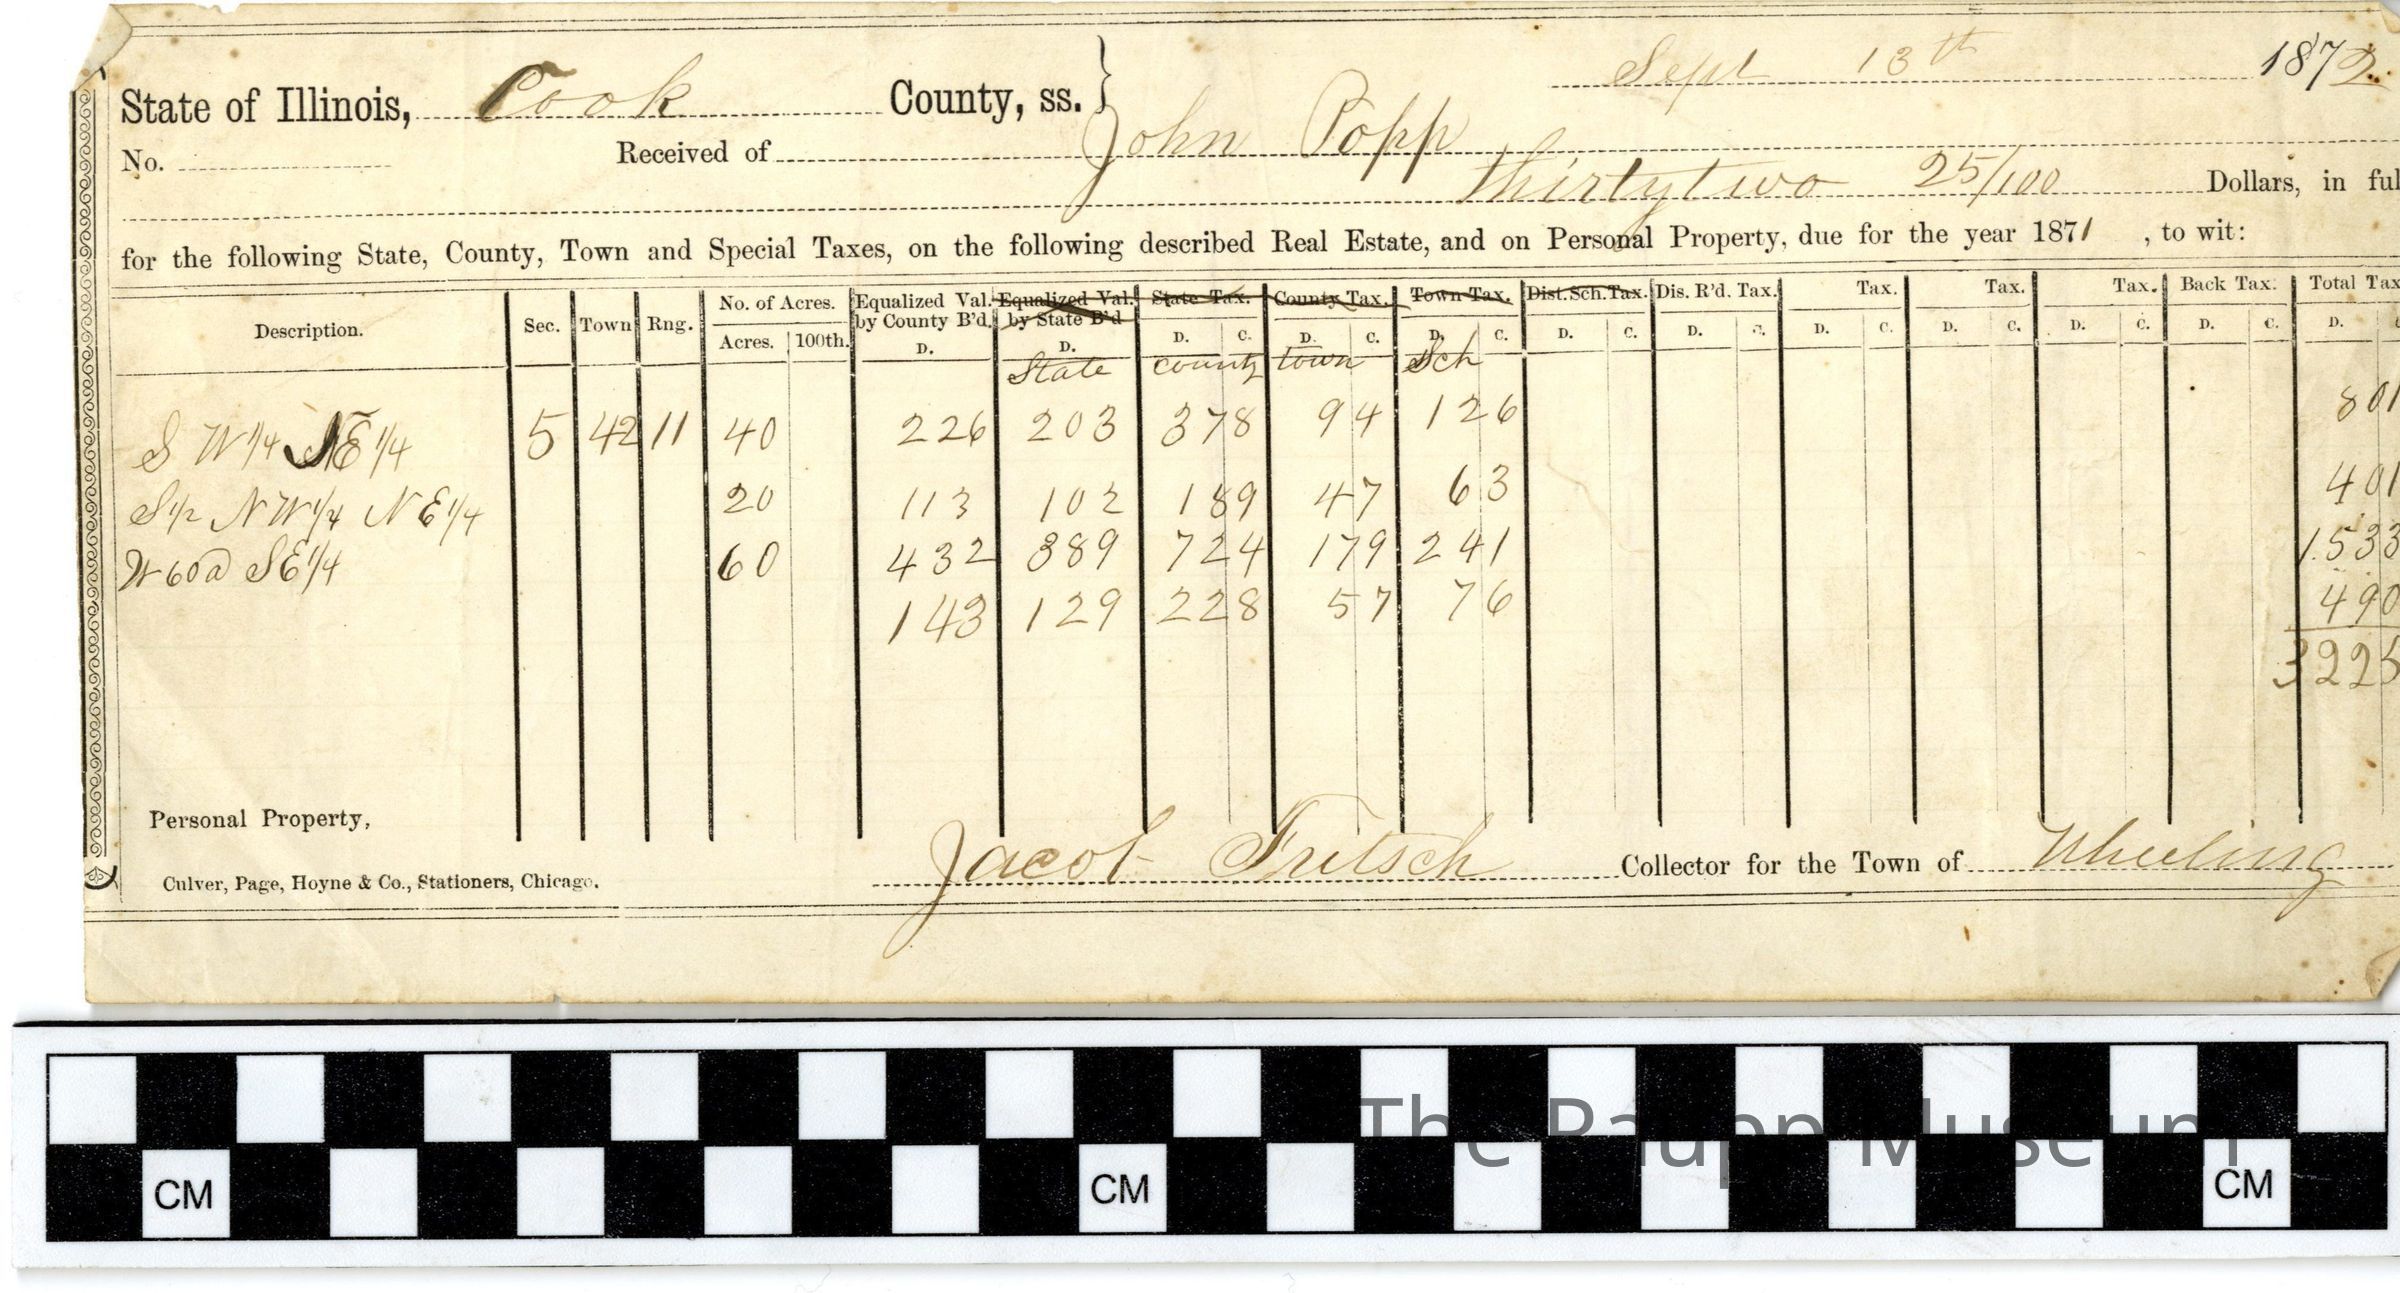 Sept 13th 1872.
State of Illinois, Cook County, ss. }
No. Received of John Popp
thirtytwo 25/100 Dollars, in ful
for the following State, County, Town and Special Taxes, on the following described Real Estate, and on Personal Property, due for the year 1871 , to wit:
Description. Sec. Town Rng. No. of Acres. Acres. 100th. Equalized Val. by County B'd. D. Equalized Val. by State B'd D. State Tax. D. C. County Tax. D. C. Town Tax. D. C. Dist. Sch. Tax. D. C. Dis. R'd. Tax. D. C. Tax. D. C. Tax. D. C. Tax. D. C. Back Tax. D. C. Total Tax D.
State county town Sch
S W 1/4 NE 1/4 5 42 11 40 226 203 378 94 126 801
S 1/2 N W 1/4 N E 1/4 20 113 102 189 47 63 401
W 60a S E 1/4 60 432 389 724 179 241 1533
143 129 228 57 76 490
3225
Personal Property,
Jacob Fritsch Collector for the Town of Wheeling
Culver, Page, Hoyne & Co., Stationers, Chicago.
The Raupp Museum
CM CM CM